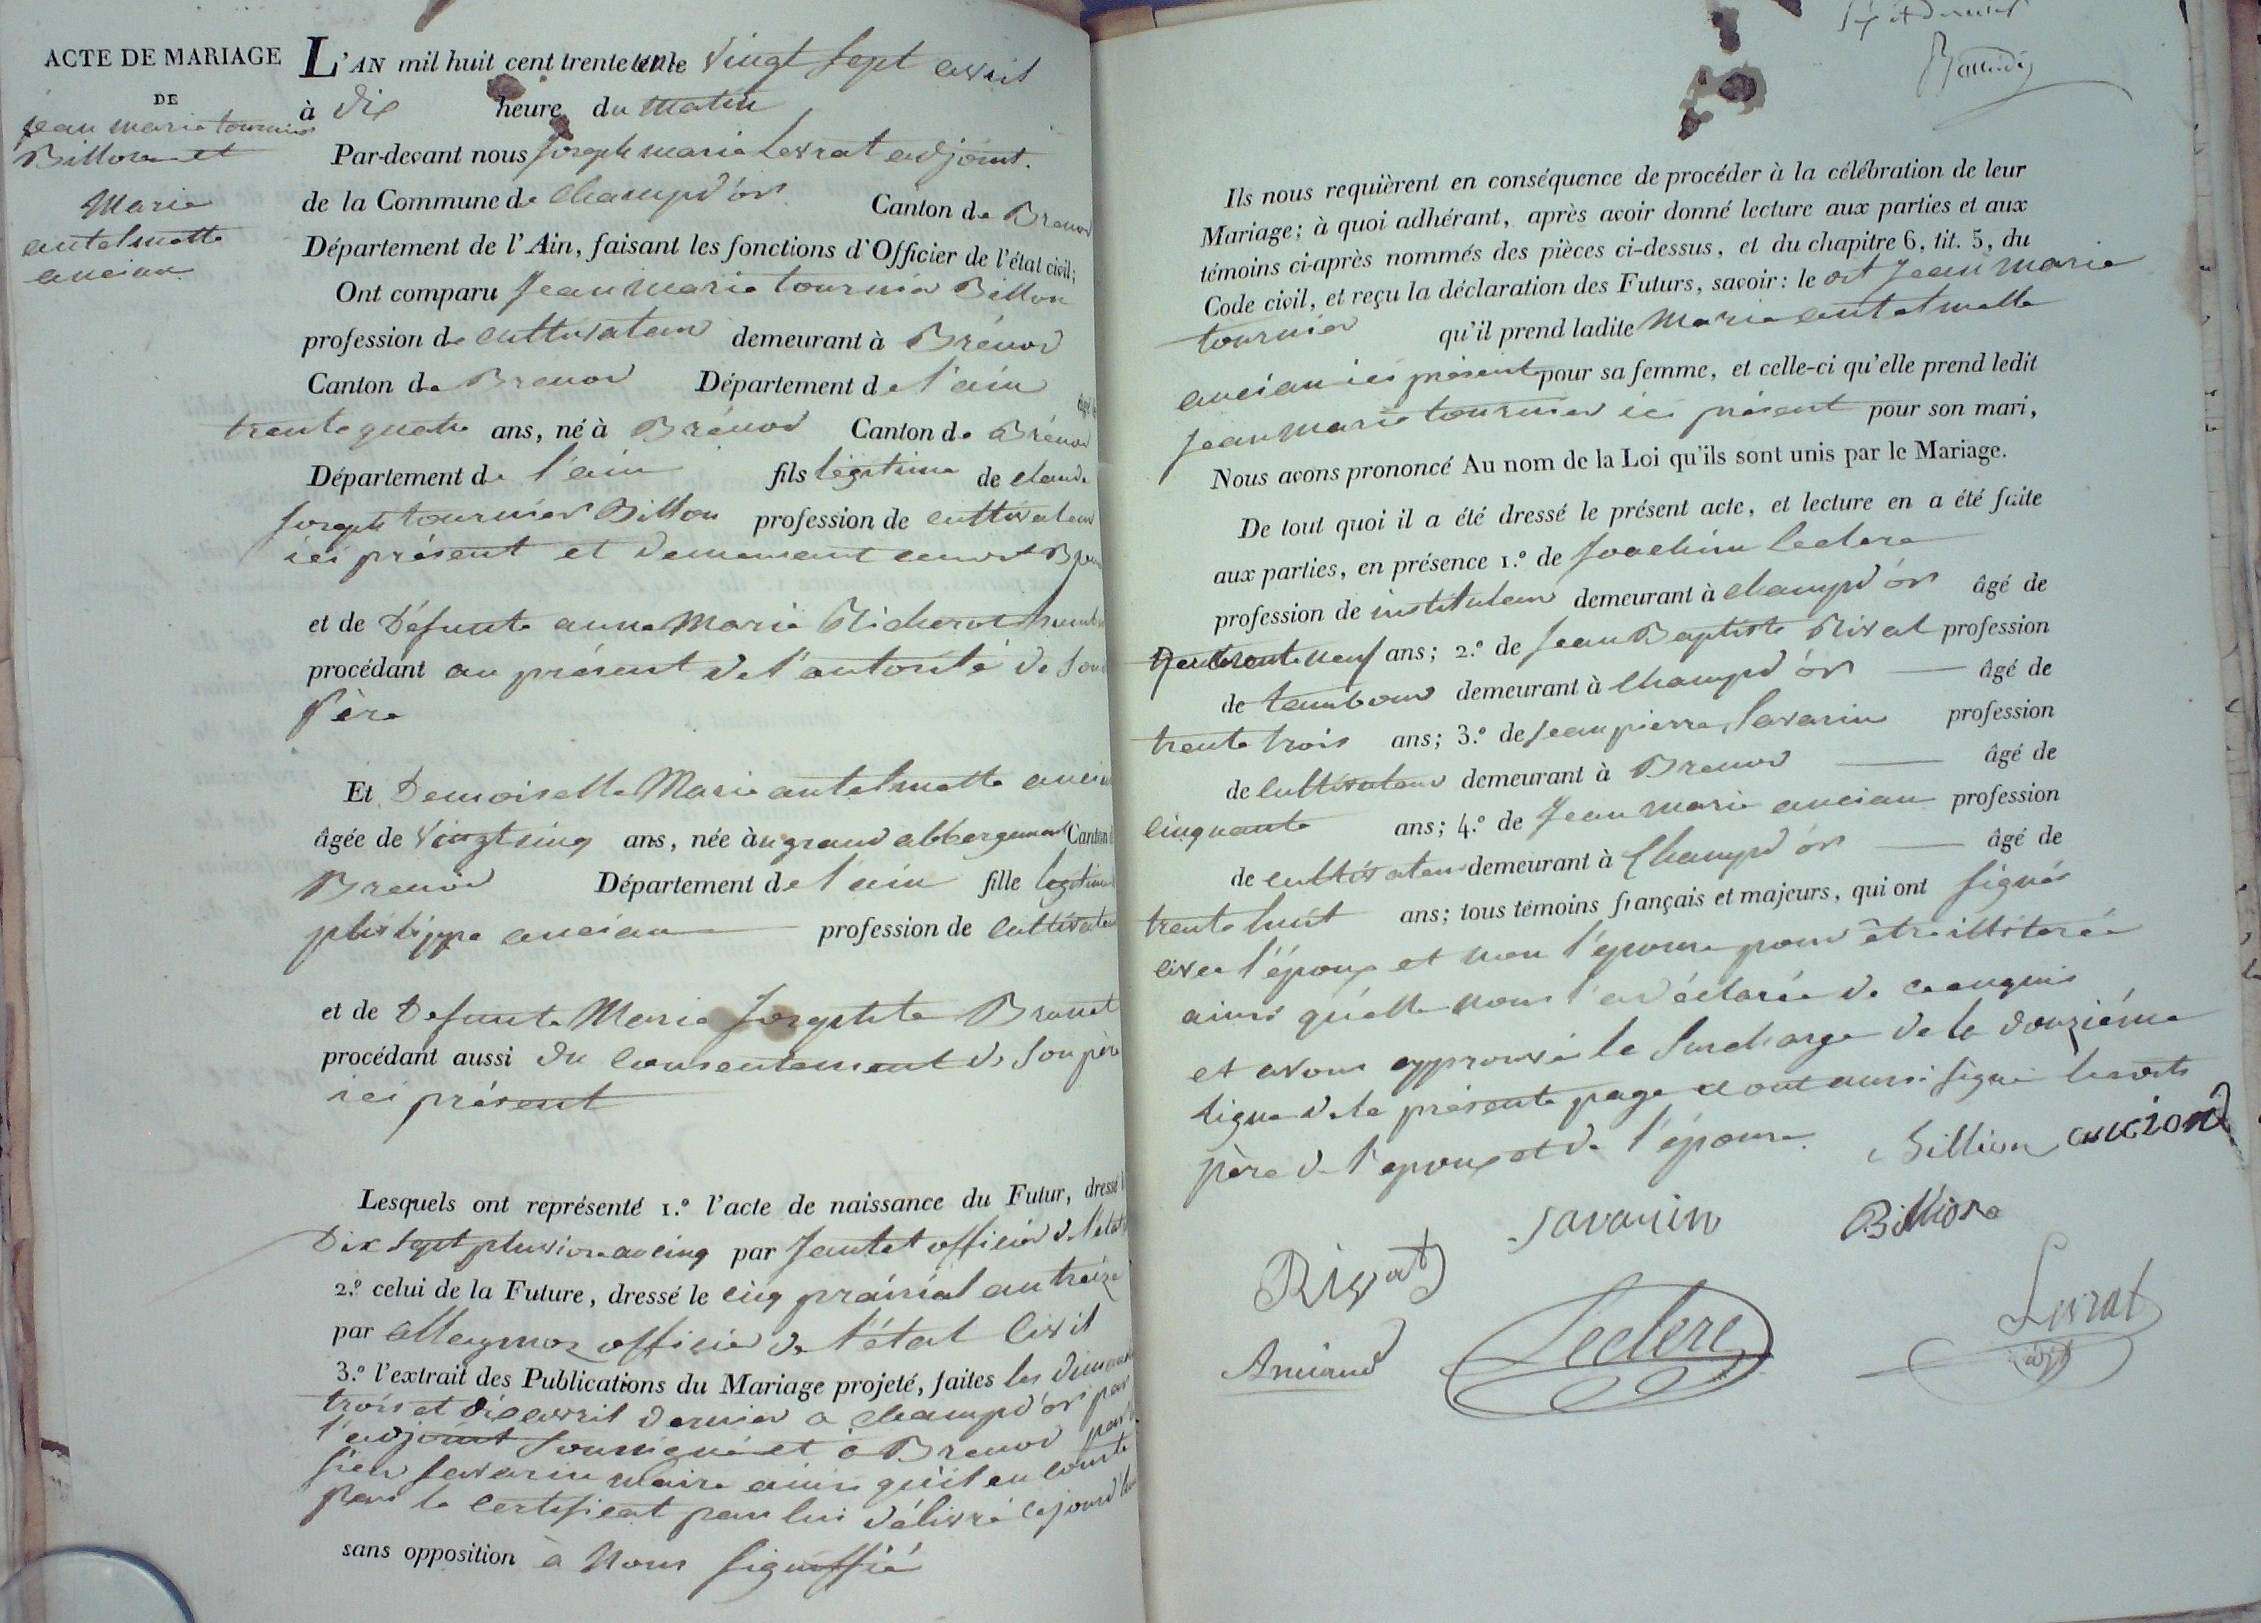 ACTE DE MARIAGE
DE
jean marie tournier
Billon et
Marie
antelmette
ancian
L'AN mil huit cent trente un le vingt sept avril
à dix heure du matin
Par-devant nous joseph marie Levrat adjoint
de la Commune de champd'or Canton de Brenod
Département de l'Ain, faisant les fonctions d'Officier de l'état civil;
Ont comparu jean marie tournier Billon
profession de cultivateur demeurant à Brénod
Canton de Brenod Département de l'ain âgé de
trente quatre ans, né à Brénod Canton de Brénod
Département de l'ain fils légitime de claude
joseph tournier Billon profession de cultivateur
ici présent et demeurant
et de défunte anne Marie
procédant au présent de l'autorité de son
père
Et Demoiselle Marie antelmette ancian
âgée de vingt cinq ans, née au grand abbergement Canton
Brenod Département de l'ain fille legitime
philippe ancian profession de cultivateur
et de Defunte Marie Josephte Brunet
procédant aussi du consentement de son père
ici présent
Lesquels ont représenté 1.º l'acte de naissance du Futur, dressé
Dix sept pluviose an cinq par jantet officier de l'état
2.º celui de la Future, dressé le cinq prairial an treize
par officier de l'état civil
3.º l'extrait des Publications du Mariage projeté, faites les dimanches
trois et dix avril dernier a champd'or par
l'adjoint soussigné et à Brenod par
sieur savarin maire ainsi qu'il en conste
par le certificat par lui délivré cejourd'hui
sans opposition à nous signiffié
Ils nous requièrent en conséquence de procéder à la célébration de leur
Mariage; à quoi adhérant, après avoir donné lecture aux parties et aux
témoins ci-après nommés des pièces ci-dessus, et du chapitre 6, tit. 5, du
Code civil, et reçu la déclaration des Futurs, savoir: le dt jean marie
tournier qu'il prend ladite Marie antelmette
ancian ici présente pour sa femme, et celle-ci qu'elle prend ledit
jean marie tournier ici présent pour son mari,
Nous avons prononcé Au nom de la Loi qu'ils sont unis par le Mariage.
De tout quoi il a été dressé le présent acte, et lecture en a été faite
aux parties, en présence 1.º de joachim Leclerc
profession de instituteur demeurant à champd'or âgé de
trente neuf ans; 2.º de jean Baptiste Rivat profession
de tambour demeurant à champd'or âgé de
trente trois ans; 3.º de jean pierre Savarin profession
de cultivateur demeurant à Brenod âgé de
cinquante ans; 4.º de jean marie ancian profession
de cultivateur demeurant à champd'or âgé de
trente huit ans; tous témoins français et majeurs, qui ont signés
avec l'époux et non l'épouse pour être illiterée
ainsi qu'elle nous l'a déclarée de ce enquis
et avons approuvé la surcharge de la douzième
ligne de la présente page et ont aussi signé lesdits
père de l'epoux et de l'épouse
billion anciand
Savarin Billion
Rivat
Anciand Leclerc Levrat
adjt